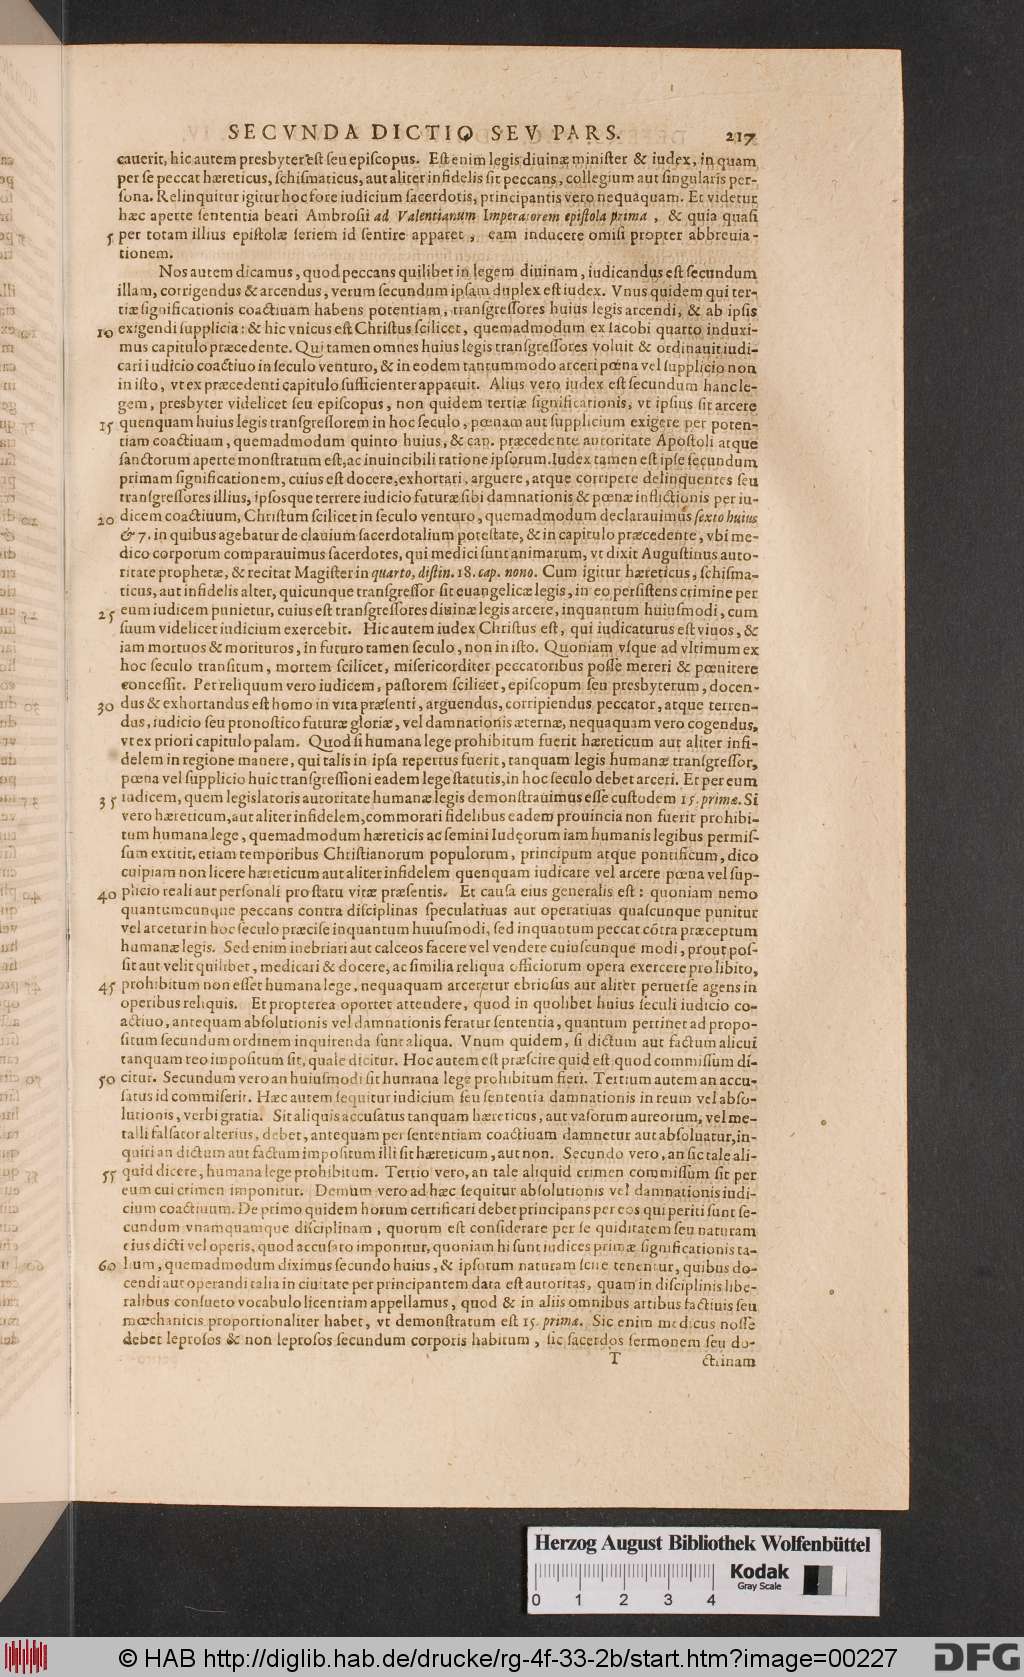 SECVNDA DICTIO SEV PARS. 217
cauerit, hic autem presbyter est seu episcopus. Est enim legis diuinæ minister & iudex, in quam
per se peccat hæreticus, schismaticus, aut aliter infidelis sit peccans, collegium aut singularis per-
sona. Relinquitur igitur hoc fore iudicium sacerdotis, principantis vero nequaquam. Et videtur
hæc aperte sententia beati Ambrosii ad Valentianum Imperatorem epistola prima, & quia quasi
5 per totam illius epistolæ seriem id sentire apparet, eam inducere omisi propter abbreuia-
tionem.
Nos autem dicamus, quod peccans quilibet in legem diuinam, iudicandus est secundum
illam, corrigendus & arcendus, verum secundum ipsam duplex est iudex. Vnus quidem qui ter-
tiæ significationis coactiuam habens potentiam, transgressores huius legis arcendi, & ab ipsis
10 exigendi supplicia: & hic vnicus est Christus scilicet, quemadmodum ex Iacobi quarto induxi-
mus capitulo præcedente. Qui tamen omnes huius legis transgressores voluit & ordinauit iudi-
cari iudicio coactiuo in seculo venturo, & in eodem tantummodo arceri pœna vel supplicio non
in isto, vt ex præcedenti capitulo sufficienter apparuit. Alius vero iudex est secundum hanc le-
gem, presbyter videlicet seu episcopus, non quidem tertiæ significationis, vt ipsius sit arcere
15 quenquam huius legis transgressorem in hoc seculo, pœnam aut supplicium exigere per poten-
tiam coactiuam, quemadmodum quinto huius, & cap. præcedente autoritate Apostoli atque
sanctorum aperte monstratum est, ac inuincibili ratione ipsorum. Iudex tamen est ipse secundum
primam significationem, cuius est docere, exhortari, arguere, atque corripere delinquentes seu
transgressores illius, ipsosque terrere iudicio futuræ sibi damnationis & pœnæ inflictionis per iu-
20 dicem coactiuum, Christum scilicet in seculo venturo, quemadmodum declarauimus sexto huius
& 7. in quibus agebatur de clauium sacerdotalium potestate, & in capitulo præcedente, vbi me-
dico corporum comparauimus sacerdotes, qui medici sunt animarum, vt dixit Augustinus auto-
ritate prophetæ, & recitat Magister in quarto, distin. 18. cap. nono. Cum igitur hæreticus, schisma-
ticus, aut infidelis alter, quicunque transgressor sit euangelicæ legis, in eo persistens crimine per
25 eum iudicem punietur, cuius est transgressores diuinæ legis arcere, inquantum huiusmodi, cum
suum videlicet iudicium exercebit. Hic autem iudex Christus est, qui iudicaturus est viuos, &
iam mortuos & morituros, in futuro tamen seculo, non in isto. Quoniam vsque ad vltimum ex
hoc seculo transitum, mortem scilicet, misericorditer peccatoribus posse mereri & pœnitere
concessit. Per reliquum vero iudicem, pastorem scilicet, episcopum seu presbyterum, docen-
30 dus & exhortandus est homo in vita præsenti, arguendus, corripiendus peccator, atque terren-
dus, iudicio seu pronostico futuræ gloriæ, vel damnationis æternæ, nequaquam vero cogendus,
vt ex priori capitulo palam. Quod si humana lege prohibitum fuerit hæreticum aut aliter infi-
delem in regione manere, qui talis in ipsa repertus fuerit, tanquam legis humanæ transgressor,
pœna vel supplicio huic transgressioni eadem lege statutis, in hoc seculo debet arceri. Et per eum
35 iudicem, quem legislatoris autoritate humanæ legis demonstrauimus esse custodem 15. primæ. Si
vero hæreticum, aut aliter infidelem, commorari fidelibus eadem prouincia non fuerit prohibi-
tum humana lege, quemadmodum hæreticis ac semini Iudęorum iam humanis legibus permis-
sum extitit, etiam temporibus Christianorum populorum, principum atque pontificum, dico
cuipiam non licere hæreticum aut aliter infidelem quenquam iudicare vel arcere pœna vel sup-
40 plicio reali aut personali pro statu vitæ præsentis. Et causa eius generalis est: quoniam nemo
quantumcunque peccans contra disciplinas speculatiuas aut operatiuas quascunque punitur
vel arcetur in hoc seculo præcise inquantum huiusmodi, sed inquantum peccat cōtra præceptum
humanæ legis. Sed enim inebriari aut calceos facere vel vendere cuiuscunque modi, prout pos-
sit aut velit quilibet, medicari & docere, ac similia reliqua officiorum opera exercere pro libito,
45 prohibitum non esset humana lege, nequaquam arceretur ebriosus aut aliter peruerse agens in
operibus reliquis. Et propterea oportet attendere, quod in quolibet huius seculi iudicio co-
actiuo, antequam absolutionis vel damnationis feratur sententia, quantum pertinet ad propo-
situm secundum ordinem inquirenda sunt aliqua. Vnum quidem, si dictum aut factum alicui
tanquam reo impositum sit, quale dicitur. Hoc autem est præscire quid est quod commissum di-
50 citur. Secundum vero an huiusmodi sit humana lege prohibitum fieri. Tertium autem an accu-
satus id commiserit. Hæc autem sequitur iudicium seu sententia damnationis in reum vel abso-
lutionis, verbi gratia. Sit aliquis accusatus tanquam hæreticus, aut vasorum aureorum, vel me-
talli falsator alterius, debet, antequam per sententiam coactiuam damnetur aut absoluatur, in-
quiri an dictum aut factum impositum illi sit hæreticum, aut non. Secundo vero, an sic tale ali-
55 quid dicere, humana lege prohibitum. Tertio vero, an tale aliquid crimen commissum sit per
eum cui crimen imponitur. Demum vero ad hæc sequitur absolutionis vel damnationis iudi-
cium coactiuum. De primo quidem horum certificari debet principans per eos qui periti sunt se-
cundum vnamquamque disciplinam, quorum est considerare per se quiditatem seu naturam
eius dicti vel operis, quod accusato imponitur, quoniam hi sunt iudices primæ significationis ta-
60 lium, quemadmodum diximus secundo huius, & ipsorum naturam scire tenentur, quibus do-
cendi aut operandi talia in ciuitate per principantem data est autoritas, quam in disciplinis libe-
ralibus consueto vocabulo licentiam appellamus, quod & in aliis omnibus artibus factiuis seu
mœchanicis proportionaliter habet, vt demonstratum est 15. primæ. Sic enim medicus nosse
debet leprosos & non leprosos secundum corporis habitum, sic sacerdos sermonem seu do-
T ctrinam
Herzog August Bibliothek Wolfenbüttel
Kodak
Gray Scale
0 1 2 3 4
© HAB http://diglib.hab.de/drucke/rg-4f-33-2b/start.htm?image=00227
DFG